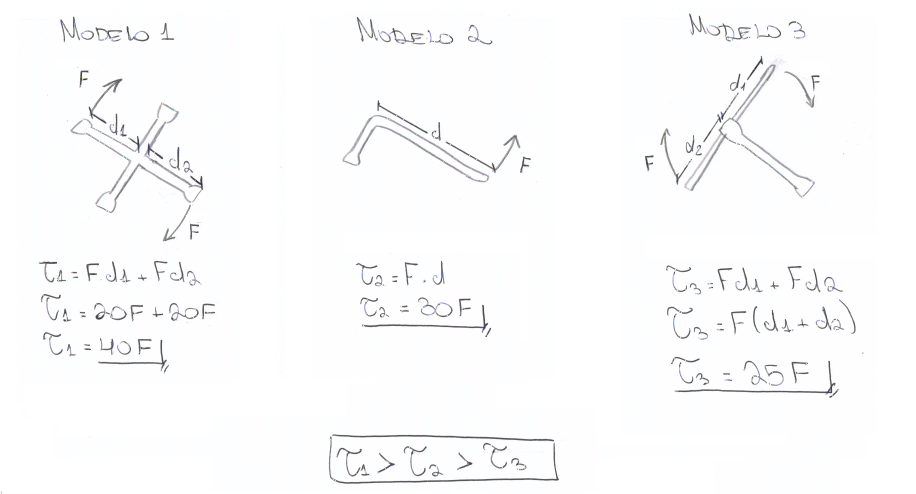 MODELO 1
F
d1
d2
F
τ1 = F.d1 + Fd2
τ1 = 20F + 20F
τ1 = 40F
MODELO 2
d
F
τ2 = F.d
τ2 = 30F
MODELO 3
d1
F
d2
F
τ3 = Fd1 + Fd2
τ3 = F(d1 + d2)
τ3 = 25F
τ1 > τ2 > τ3